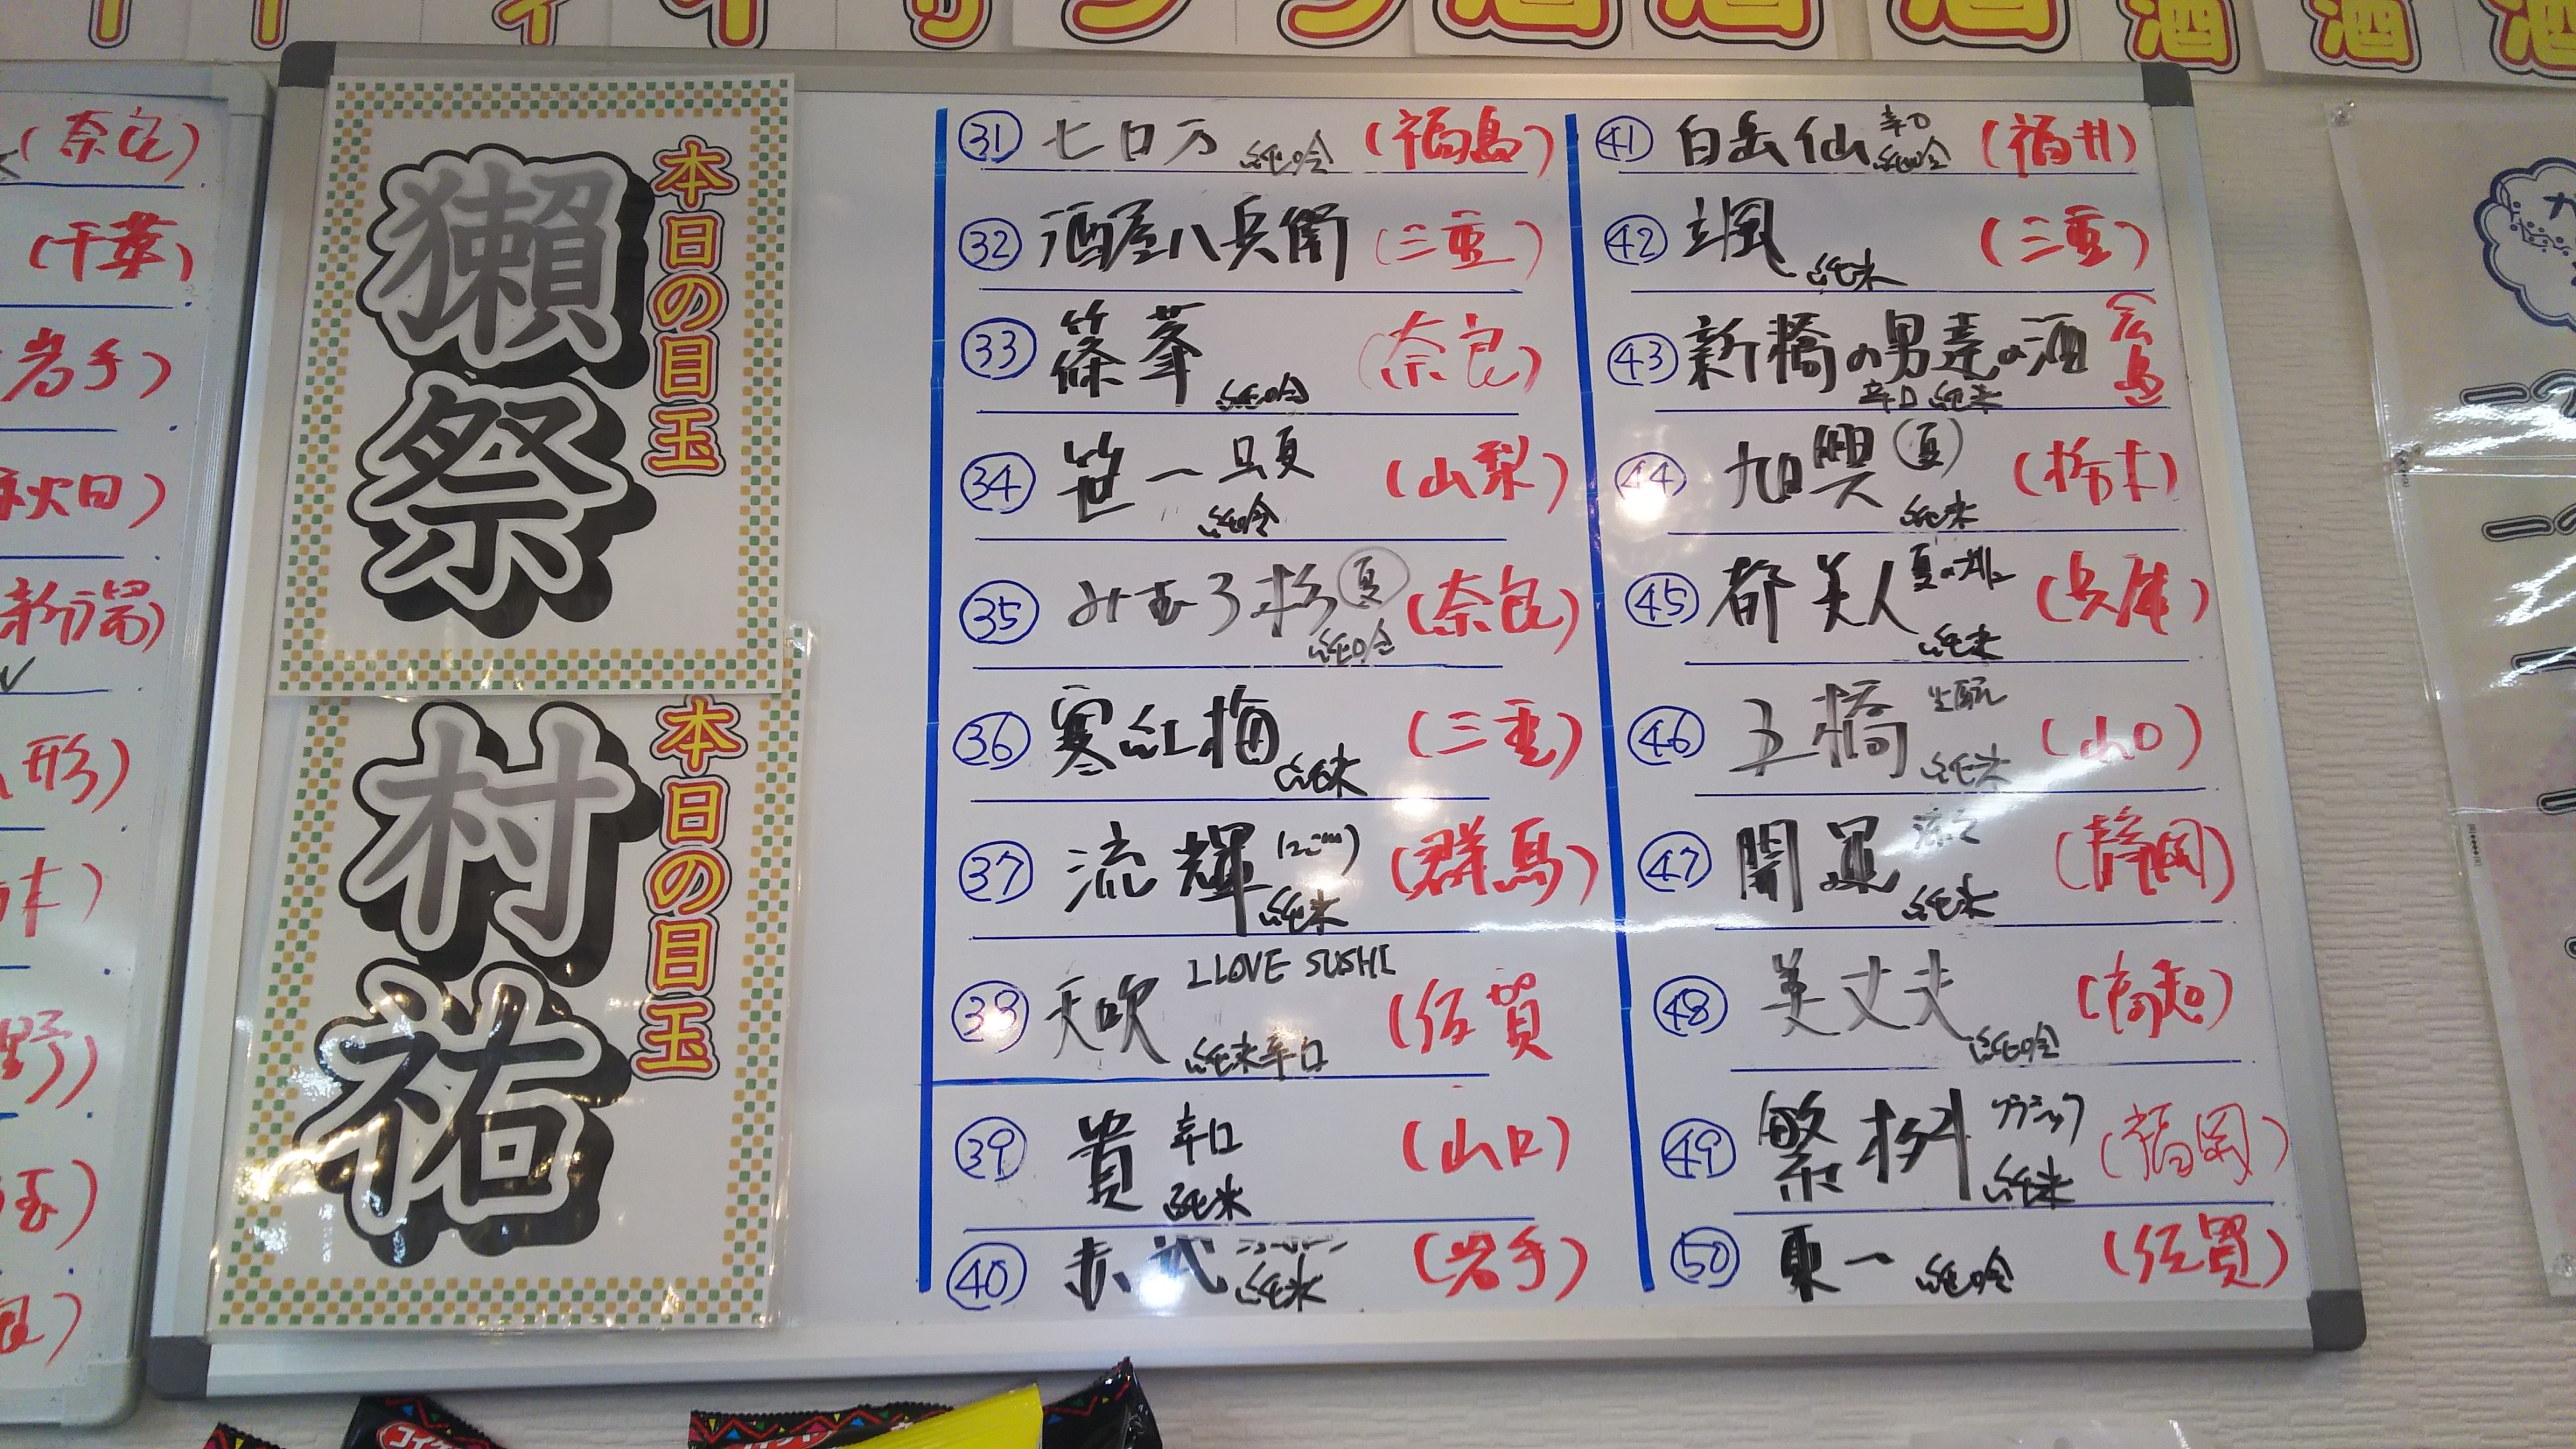 本日の目玉
獺祭
本日の目玉
村祐
㉛ 七ロ万 純吟 (福島)
㉜ 酒屋八兵衛 (三重)
㉝ 篠峯 純吟 (奈良)
㉞ 笹一 純吟 (山梨)
㉟ みむろ杉 夏 純吟 (奈良)
㊱ 寒紅梅 純米 (三重)
㊲ 流輝 純米 (群馬)
㊳ 天吹 I LOVE SUSHI 純米辛口 (佐賀
㊴ 貴 辛口 純米 (山口)
㊵ 赤武 純米 (岩手)
㊶ 白岳仙 辛口 純吟 (福井)
㊷ 颯 純米 (三重)
㊸ 新橋の男達の酒 辛口 純米 (広島)
㊹ 旭興 (夏) 純米 (栃木)
㊺ 都美人 純米 (兵庫)
㊻ 五橋 生酛 純米 (山口)
㊼ 開運 涼々 純米 (静岡)
㊽ 美丈夫 純吟 (高知)
㊾ 繁桝 クラシック 純米 (福岡)
㊿ 東一 純吟 (佐賀)
(奈良)
(千葉)
岩手)
秋田)
新潟)
形)
木)
野)
玉)
コイケヤ
酒 酒 酒 酒 酒